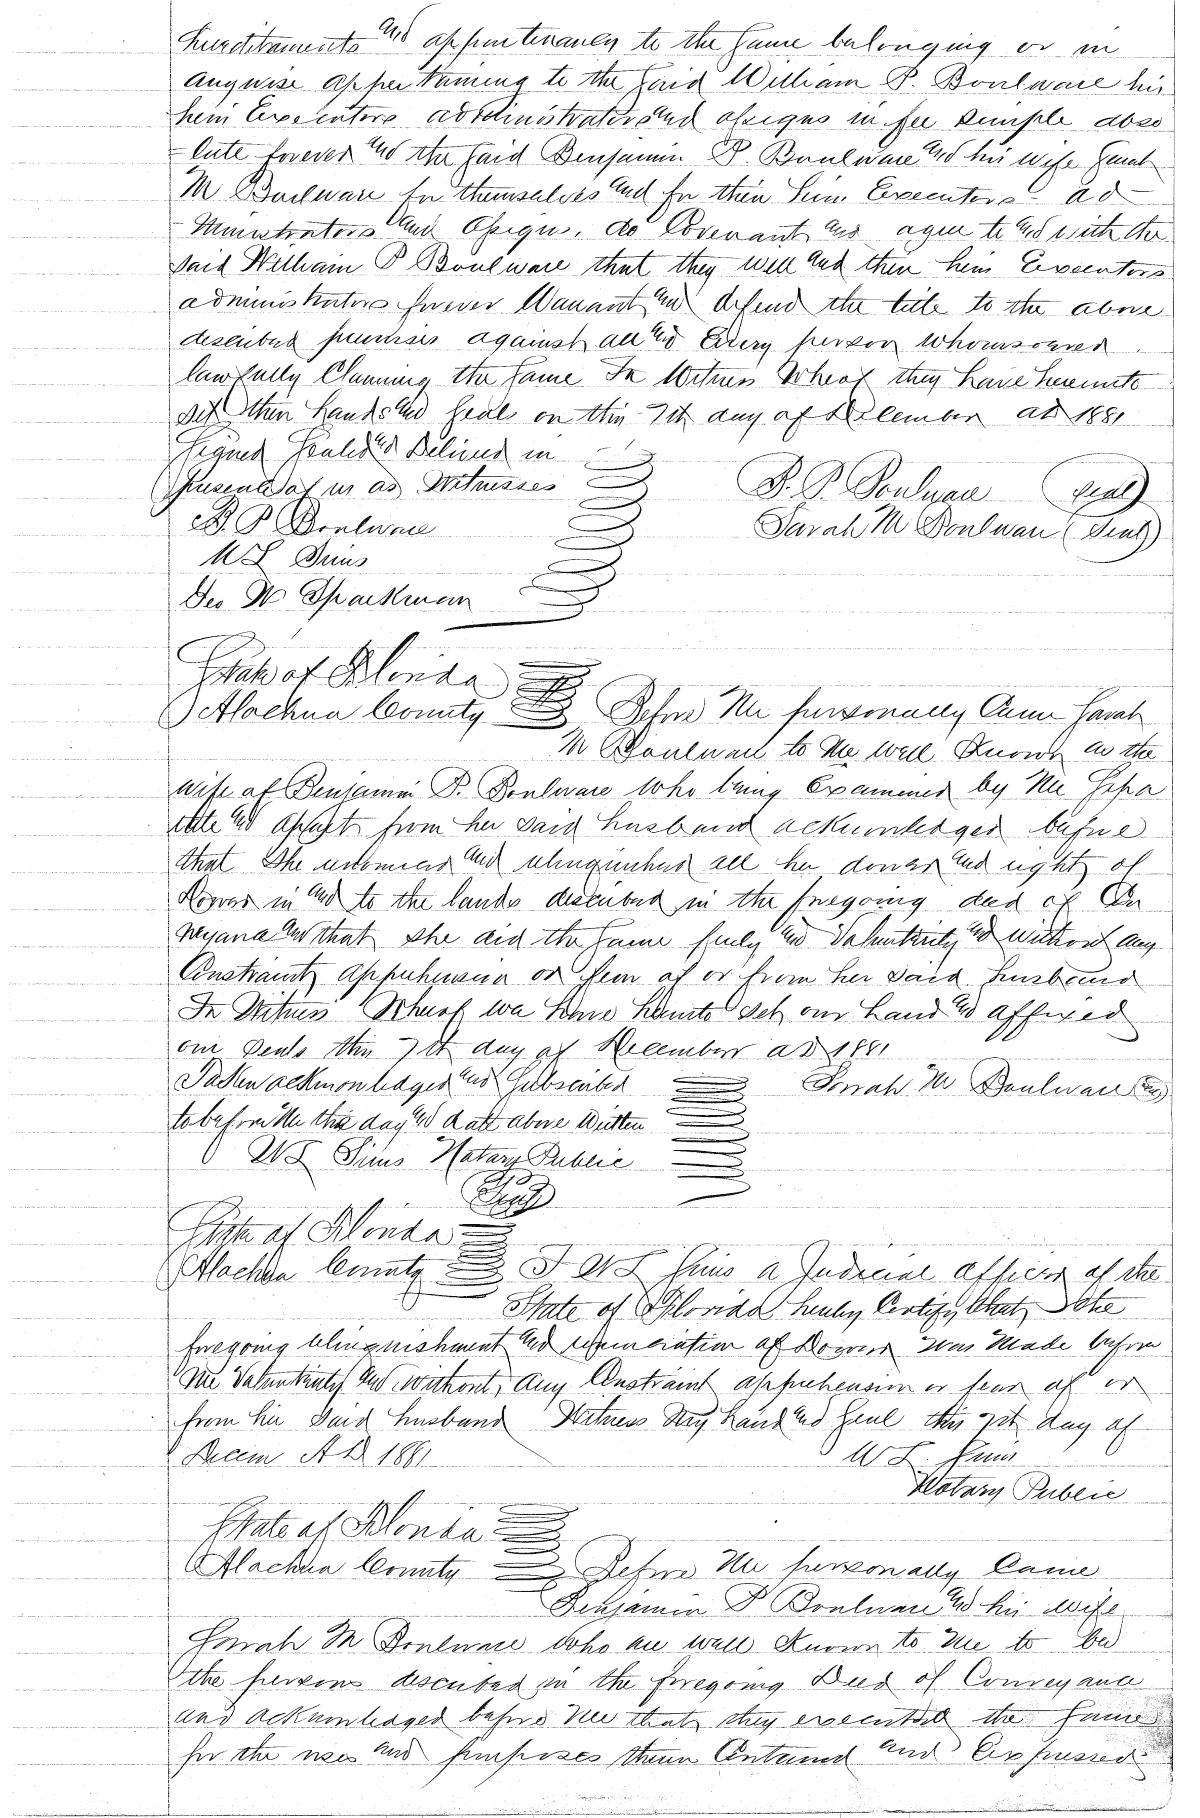 hereditaments and appurtenances to the same belonging or in
anywise appertaining to the said William P. Boulware his
heirs Executors administrators and assigns in fee simple abso
-lute forever and the said Benjamin P. Boulware and his wife Sarah
M Boulware for themselves and for their heirs Executors - ad-
-ministrators and assigns, do Covenant and agree to and with the
said William P Boulware that they will and their heirs Executors
administrators forever Warrant and defend the title to the above
described premises against all and Every person whomsoever
lawfully Claiming the same In Witness Whereof they have hereunto
set their hands and seal on this 7th day of December AD 1881
Signed Sealed and Delivered in
presence of us as Witnesses
B. P. Boulware (Seal)
B. P Boulware
Sarah M Boulware (Seal)
W L Sims
Geo W Sparkman
State of Florida
Alachua County Before Me personally Came Sarah
M Boulware to Me well Known as the
wife of Benjamin P. Boulware who being Examined by Me Sepa
rate and apart from her said husband acknowledged before
that she renounced and relinquished all her dower and right of
Dower in and to the lands described in the foregoing deed of Con
veyance and that she did the same freely and Voluntarily and without any
Constraint apprehension or fear of or from her said husband
In Witness Whereof we have hereunto set our hand and affixed
our seals this 7th day of December AD 1881
Taken acknowledged and Subscribed Sarah M Boulware (Seal)
to before Me this day and date above Written
W L Sims Notary Public
Seal
State of Florida
Alachua County I W L Sims a Judicial officer of the
State of Florida hereby Certify that the
foregoing relinquishment and renunciation of Dower was Made before
Me Voluntarily and without, any Constraint apprehension or fear of or
from her said husband Witness My hand and seal this 7th day of
Decem A D 1881 W L. Sims
Notary Public
State of Florida
Alachua County Before Me personally Came
Benjamin P Boulware and his wife
Sarah M Boulware who are well Known to Me to be
the persons described in the foregoing Deed of Conveyance
and acknowledged before Me that they executed the same
for the uses and purposes therein Contained and Expressed